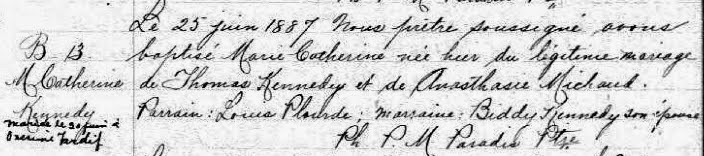 Le 25 juin 1887 Nous prêtre soussigné avons
B 13
baptisé Marie Catherine née hier du légitime mariage
M Catherine
de Thomas Kennedy et de Anasthasie Michaud.
Kennedy
Parrain: Louis Plourde; marraine: Biddy Kennedy son épouse
mariée le 30 juin à
Onésime Tardif
Ph P. M Paradis Ptre